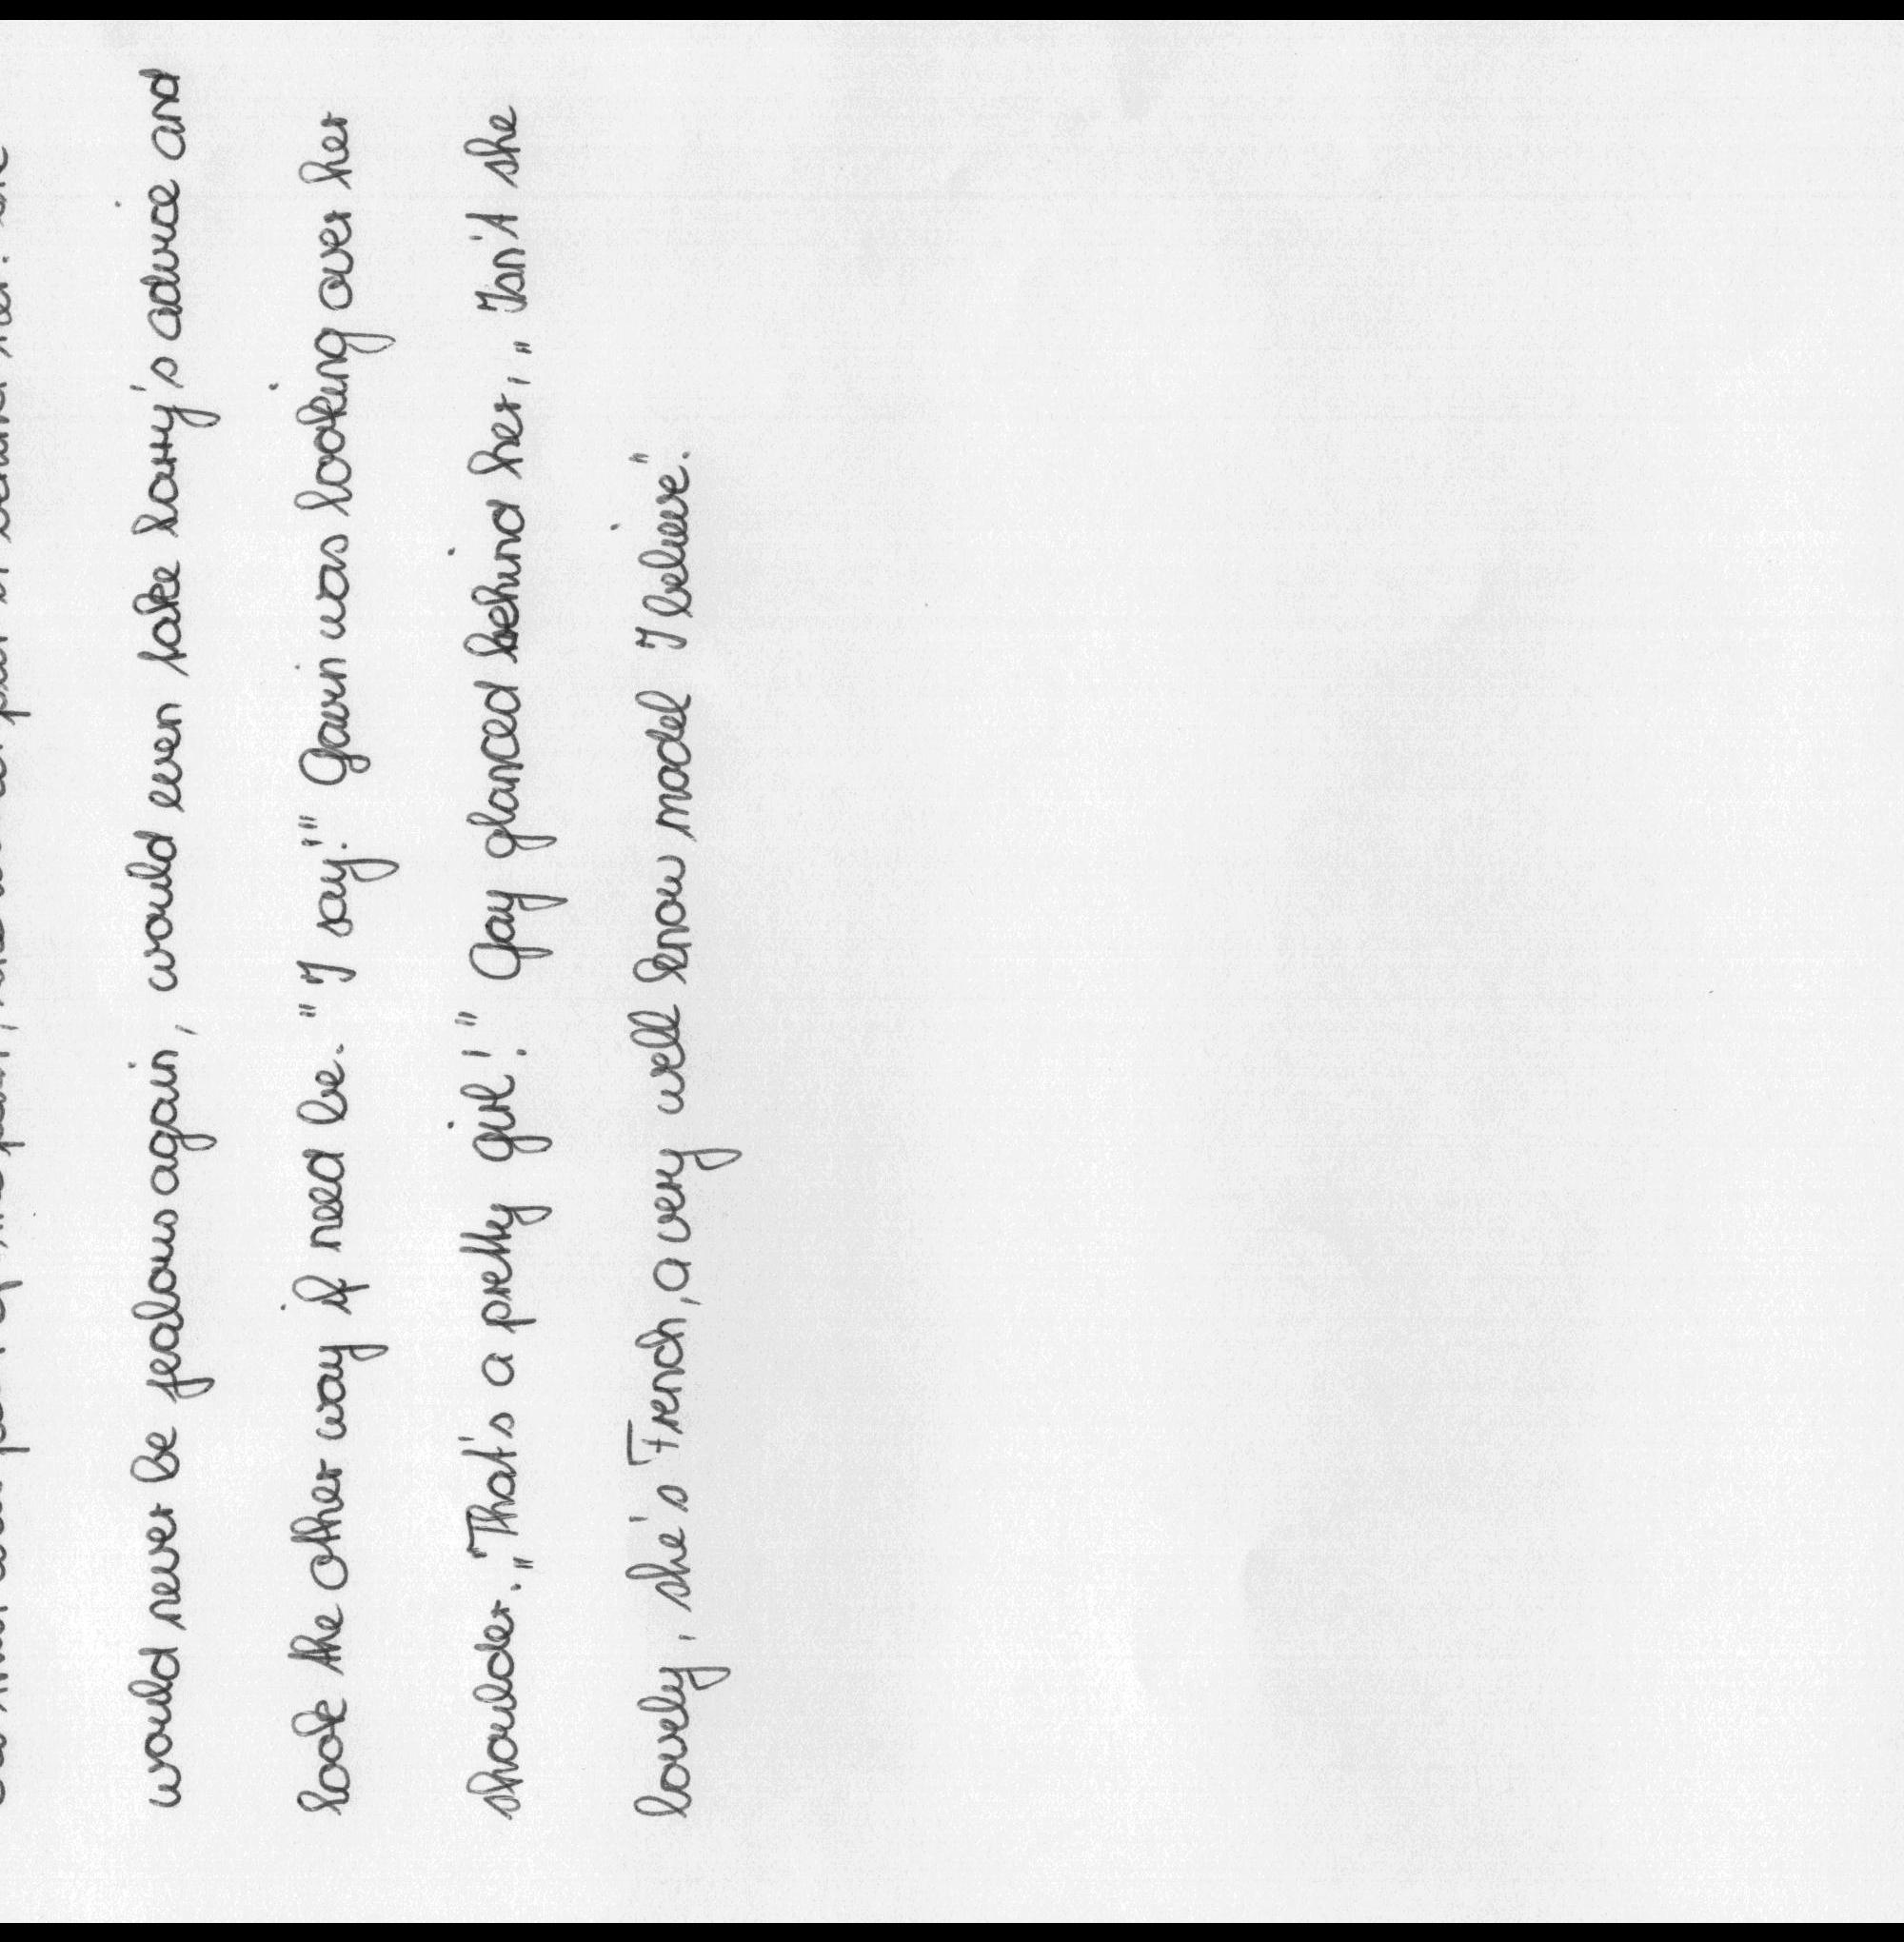 would never be jealous again, would even take harry's advice and
look the other way if need be. "I say!" Gavin was looking over her
shoulder. "That's a pretty girl!" Gay glanced behind her, "Isn't she
lovely, she's French, a very well know model I believe."